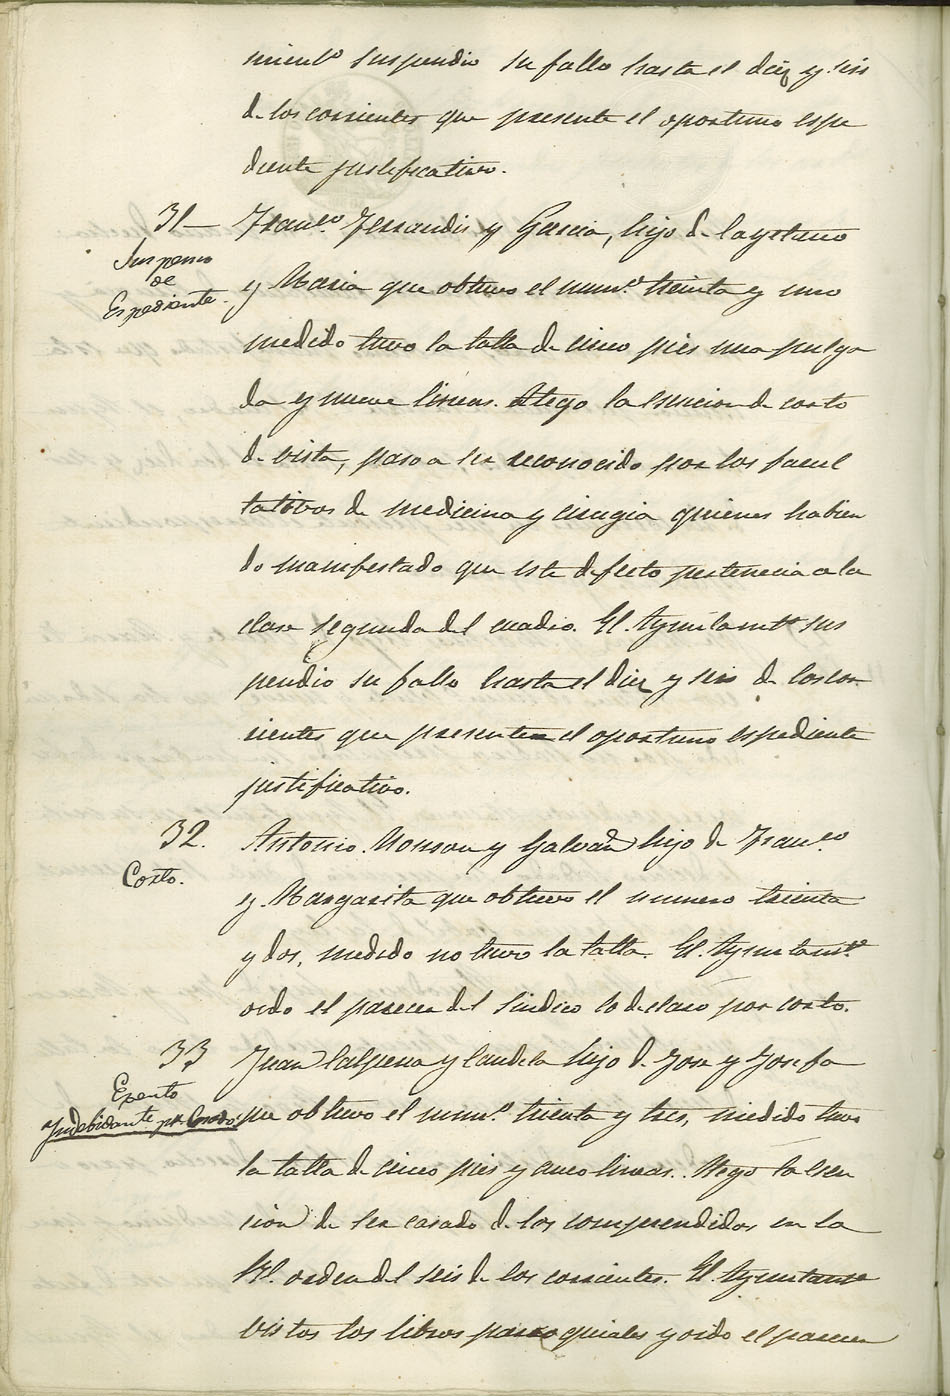 mient⁰ suspendio su fallo hasta el diez y seis
de los corrientes que presente el oportuno espe
diente justificativo.
31— Franᶜ⁰ Ferrandis y Garcia, hijo de Cayetano
Suspenso
de
Espediente.
y Maria que obtuvo el numᵒ treinta y uno
medido tuvo la talla de cinco pies una pulga
da y nueve lineas. Alego la esencion de corto
de vista, paso a ser reconocido por los facul
tativos de medicina y cirugia quienes habien
do manifestado que este defecto pertenecia a la
clase segunda del cuadro. El Ayuntamtᵒ sus
pendio su fallo hasta el diez y seis de los cor
rientes que presente el oportuno espediente
justificativo.
32. Antonio Monzon y Galvañ hijo de Franᶜᵒ
Corto.
y Margarita que obtuvo el numero treinta
y dos, medido no tuvo la talla. El Ayuntamtᵒ
oido el parecer del Sindico lo declaro por corto.
33 Juan Calpena y Candela hijo de Jose y Josefa
Esento
Indebidamte pr Casado.
que obtuvo el numᵒ treinta y tres, medido tuvo
la talla de cinco pies y cinco lineas. Alego la esen
cion de ser casado de los comprendidos en la
Rl. orden del seis de los corrientes. El Ayuntamtᵒ
vistos los libros parroquiales y oido el parecer